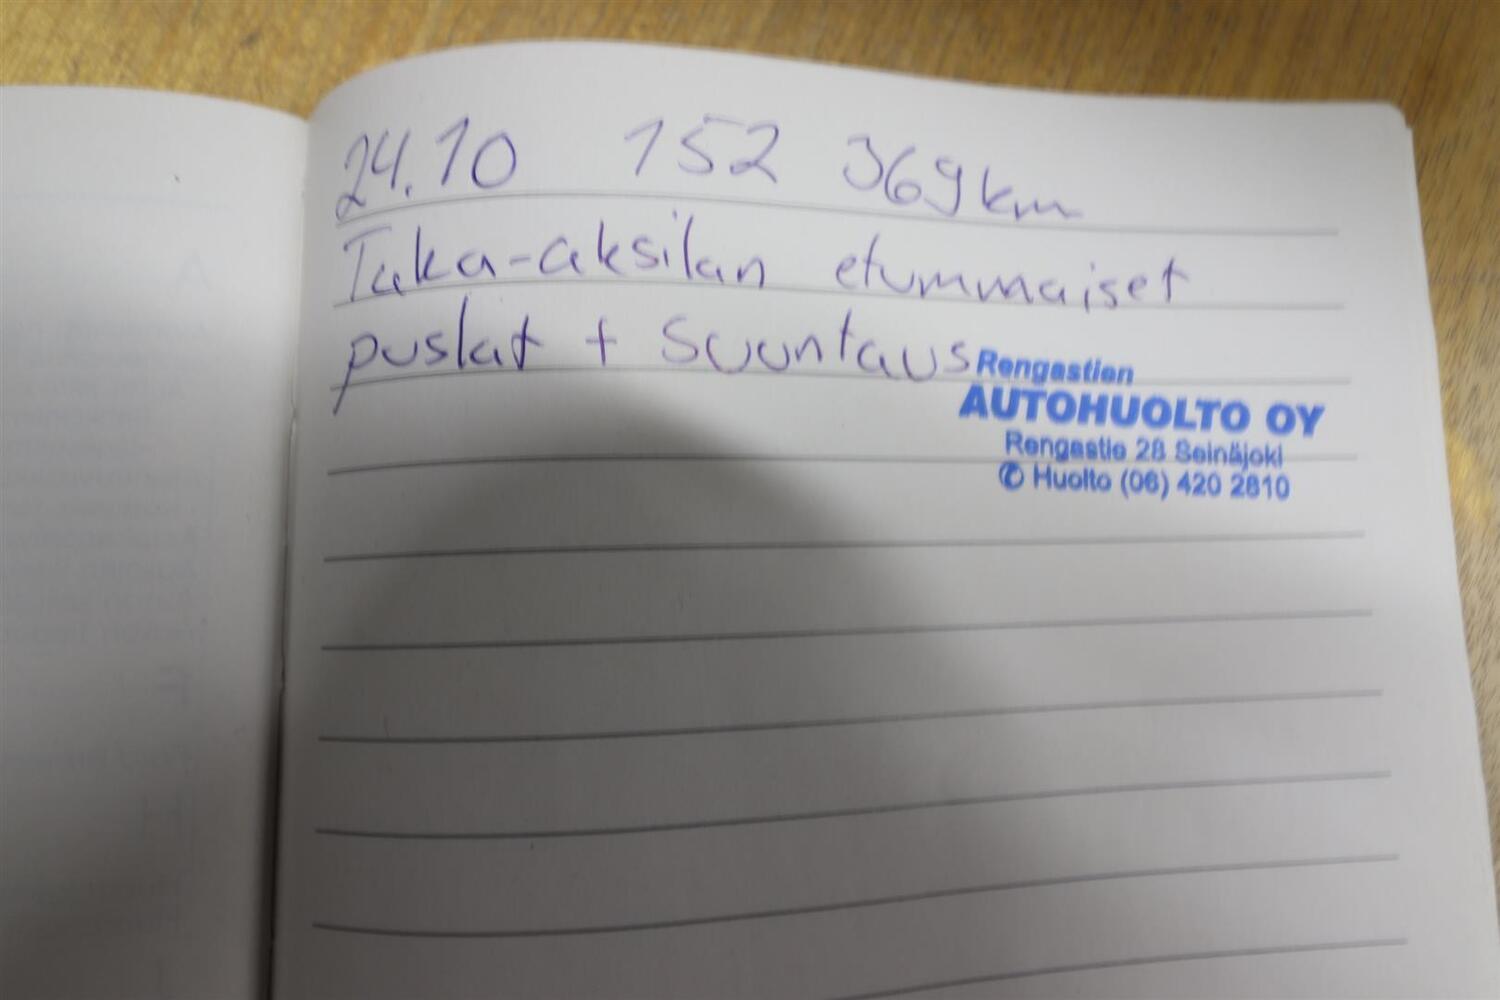 24.10 152 369km
Taka-aksilan etummaiset
puslat + Suuntaus
Rengastien
AUTOHUOLTO OY
Rengastie 28 Seinäjoki
✆ Huolto (06) 420 2810